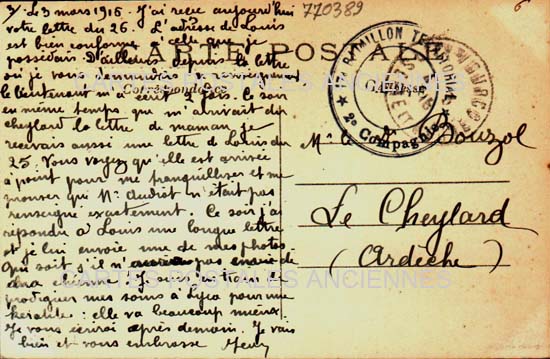 3 mars 1915. J'ai reçu aujourd'hui
votre lettre du 26. L'adresse de Louis
est bien conforme à celle que je
possédais. D'ailleurs depuis la lettre
où je vous demandais de renseignement
le lieutenant m'a écrit 2 fois. Ce soir
en même temps que m'arrivait du
Cheylard la lettre de maman, je
recevais aussi une lettre de Louis du
25. Vous voyez qu'elle est arrivée
à point pour me tranquilliser et me
prouver que Mr n'était pas
renseigné exactement. Ce soir j'ai
répondu à Louis une longue lettre
et je lui envoie une de mes photos.
Qui sait s'il n' pas envie de
sa chienne! Je suis en train de
prodiguer mes soins à pour une
kératite: elle va beaucoup mieux.
Je vous écrirai après demain. Je vais
bien et vous embrasse
770389
6
CARTE POSTALE
Correspondance
BATAILLON TERRITORIAL
2e Compagnie
Mr Bouzol
Le Cheylard
(Ardèche)
CARTES POSTALES ANCIENNES